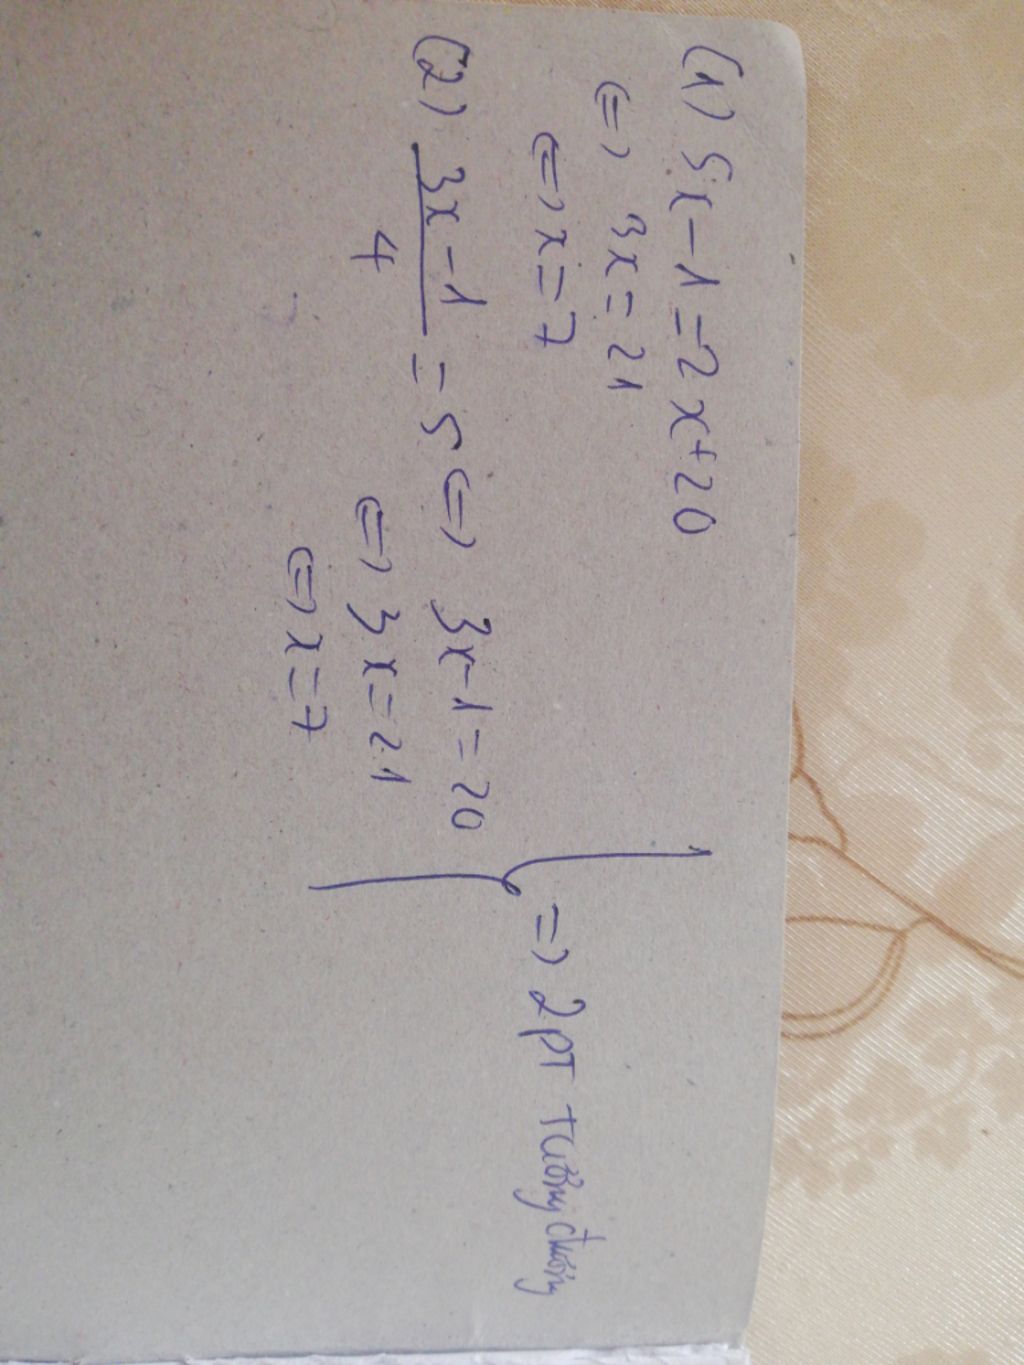 (1) 5x - 1 = 2x + 20
<=> 3x = 21
<=> x = 7
(2) (3x - 1)/4 = 5 <=> 3x - 1 = 20
<=> 3x = 21
<=> x = 7
=> 2 PT tương đương